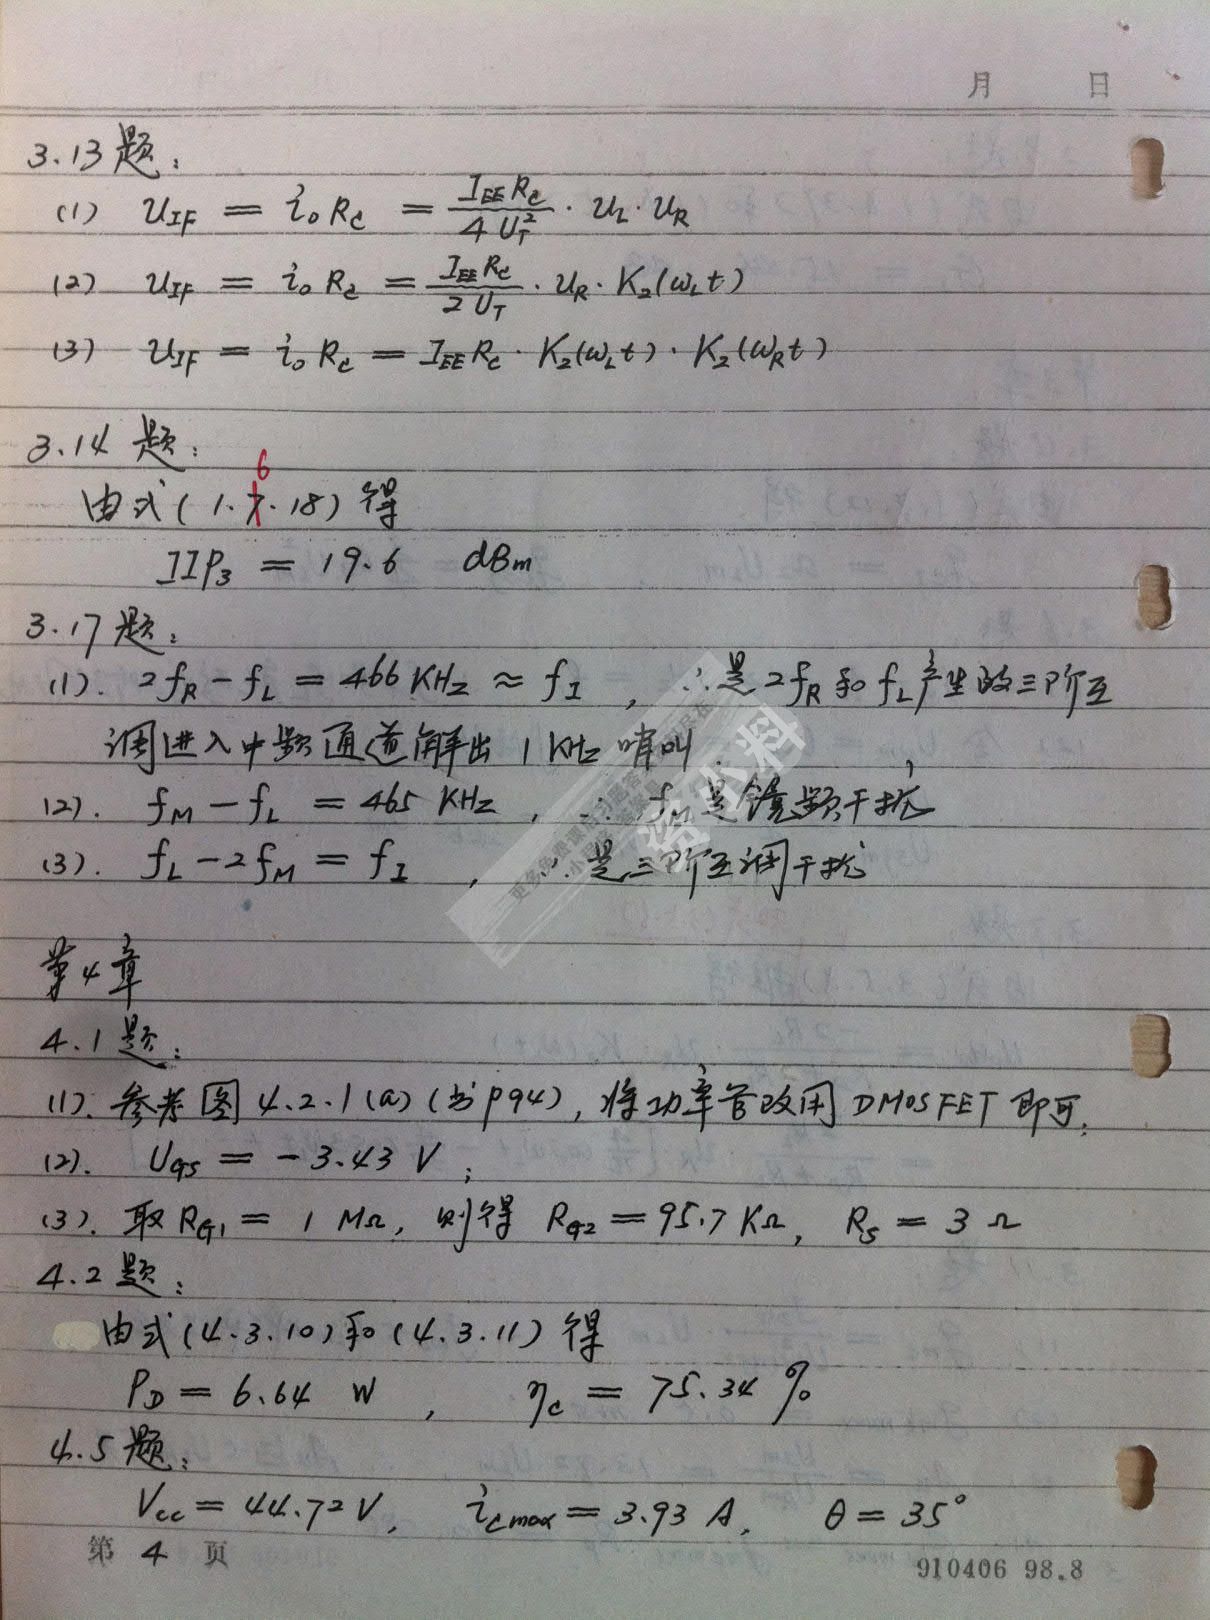 月 日
3.13题:
(1) u_IF = i_o R_c = \frac{I_{EE} R_c}{4 U_T^2} · u_L · u_R
(2) u_IF = i_o R_c = \frac{I_{EE} R_c}{2 U_T} · u_R · K_2(ω_L t)
(3) u_IF = i_o R_c = I_{EE} R_c · K_2(ω_L t) · K_2(ω_R t)
3.14题:
6
由式(1.7.18)得
IIP_3 = 19.6 dBm
3.17题:
(1). 2f_R - f_L = 466 KHz ≈ f_I , ∴是2f_R和f_L产生的三阶互
调进入中频通道解出 1 KHz 哨叫.
(2). f_M - f_L = 465 KHz , ∴ f_M是镜频干扰
(3). f_L - 2f_M = f_I , ∴ 是三阶互调干扰
第4章
4.1题:
(1). 参考图 4.2.1(a)(书P94), 将功率管改用 DMOSFET 即可.
(2). U_GS = -3.43 V ;
(3). 取R_G1 = 1 MΩ, 则得 R_G2 = 95.7 KΩ, R_S = 3 Ω
4.2题:
由式(4.3.10)和(4.3.11)得
P_D = 6.64 W , η_c = 75.34 %
4.5题:
V_cc = 44.72V, i_cmax = 3.93 A, θ = 35°
第 4 页
910406 98.8